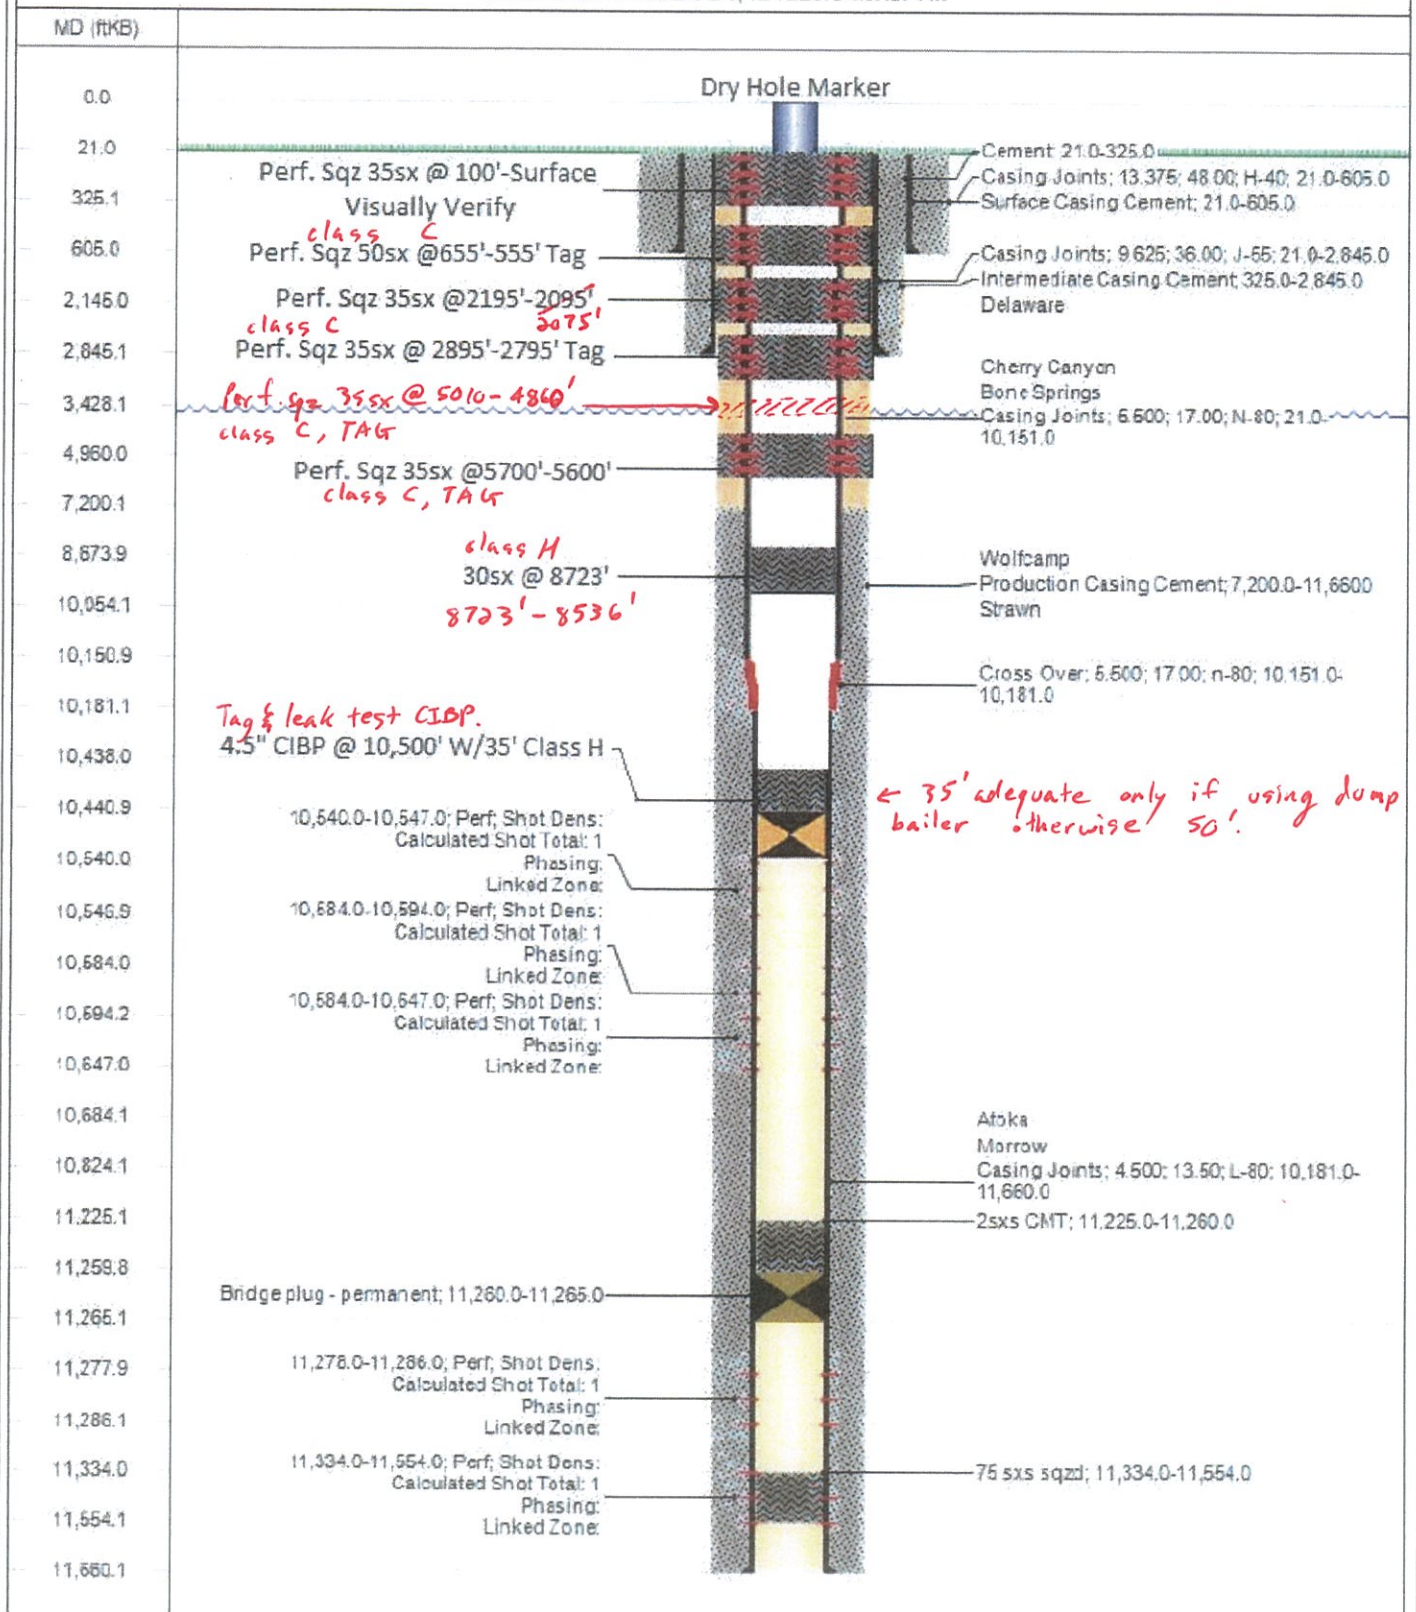 MD (ftKB)
0.0
21.0
325.1
605.0
2,145.0
2,845.1
3,428.1
4,960.0
7,200.1
8,673.9
10,054.1
10,150.9
10,181.1
10,438.0
10,440.9
10,540.0
10,546.9
10,584.0
10,594.2
10,647.0
10,684.1
10,824.1
11,225.1
11,259.8
11,265.1
11,277.9
11,286.1
11,334.0
11,554.1
11,660.1
Dry Hole Marker
Perf. Sqz 35sx @ 100'-Surface
Visually Verify
class C
Perf. Sqz 50sx @655'-555' Tag
Perf. Sqz 35sx @2195'-2095'
2075'
class C
Perf. Sqz 35sx @ 2895'-2795' Tag
Perf. sqz 35sx @ 5010-4860'
class C, TAG
Perf. Sqz 35sx @5700'-5600'
class C, TAG
class H
30sx @ 8723'
8723'-8536'
Tag & leak test CIBP.
4.5" CIBP @ 10,500' W/35' Class H
10,540.0-10,547.0; Perf; Shot Dens:
Calculated Shot Total: 1
Phasing:
Linked Zone:
10,584.0-10,594.0; Perf; Shot Dens:
Calculated Shot Total: 1
Phasing:
Linked Zone:
10,584.0-10,647.0; Perf; Shot Dens:
Calculated Shot Total: 1
Phasing:
Linked Zone:
Bridge plug - permanent; 11,260.0-11,265.0
11,278.0-11,286.0; Perf; Shot Dens:
Calculated Shot Total: 1
Phasing:
Linked Zone:
11,334.0-11,554.0; Perf; Shot Dens:
Calculated Shot Total: 1
Phasing:
Linked Zone:
Cement 21.0-325.0
Casing Joints; 13.375; 48.00; H-40; 21.0-605.0
Surface Casing Cement; 21.0-605.0
Casing Joints; 9.625; 36.00; J-55; 21.0-2,845.0
Intermediate Casing Cement; 325.0-2,845.0
Delaware
Cherry Canyon
Bone Springs
Casing Joints; 5.500; 17.00; N-80; 21.0-
10,151.0
Wolfcamp
Production Casing Cement; 7,200.0-11,6600
Strawn
Cross Over; 5.500; 17.00; n-80; 10,151.0-
10,181.0
← 35' adequate only if using dump
bailer otherwise 50'.
Atoka
Morrow
Casing Joints; 4.500; 13.50; L-80; 10,181.0-
11,660.0
2sxs CMT; 11,225.0-11,260.0
75 sxs sqzd; 11,334.0-11,554.0